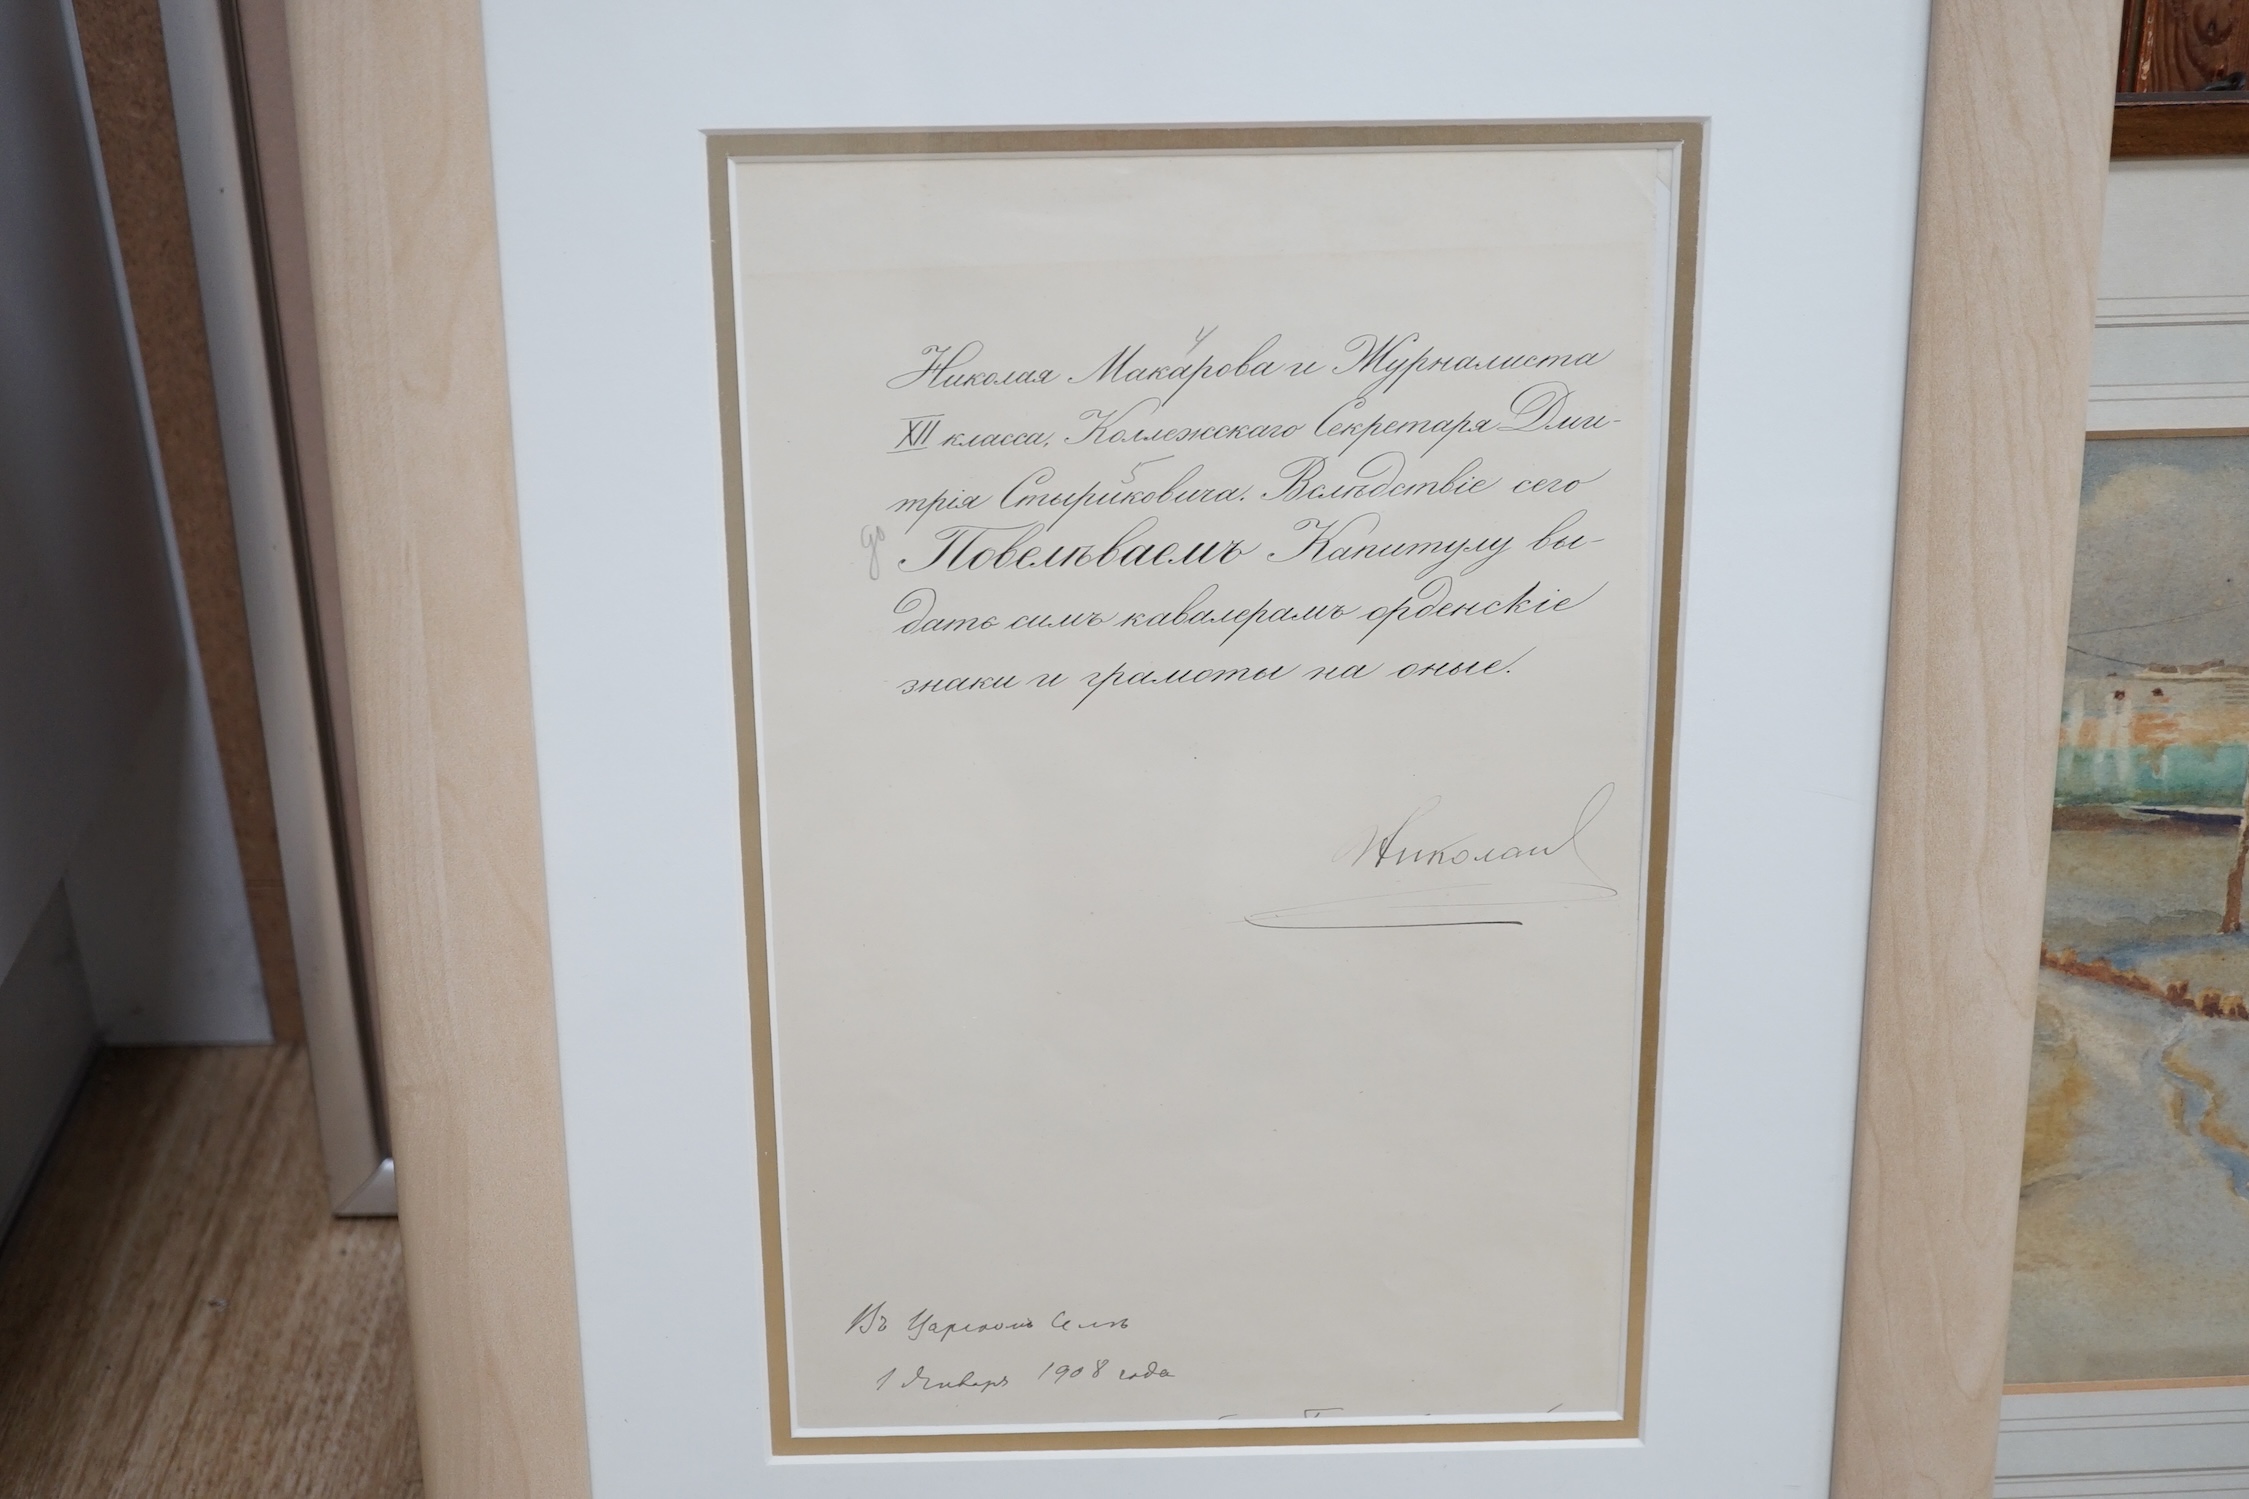 4
Николая Макарова и Журналиста
XII класса, Коллежскаго Секретаря Дми-
5
трія Стыриковича. Вслѣдствіе сего
Повелѣваемъ Капитулу вы-
дать симъ кавалерамъ орденскіе
знаки и грамоты на оные.
Николай
Въ Царскомъ Селѣ
1 Января 1908 года